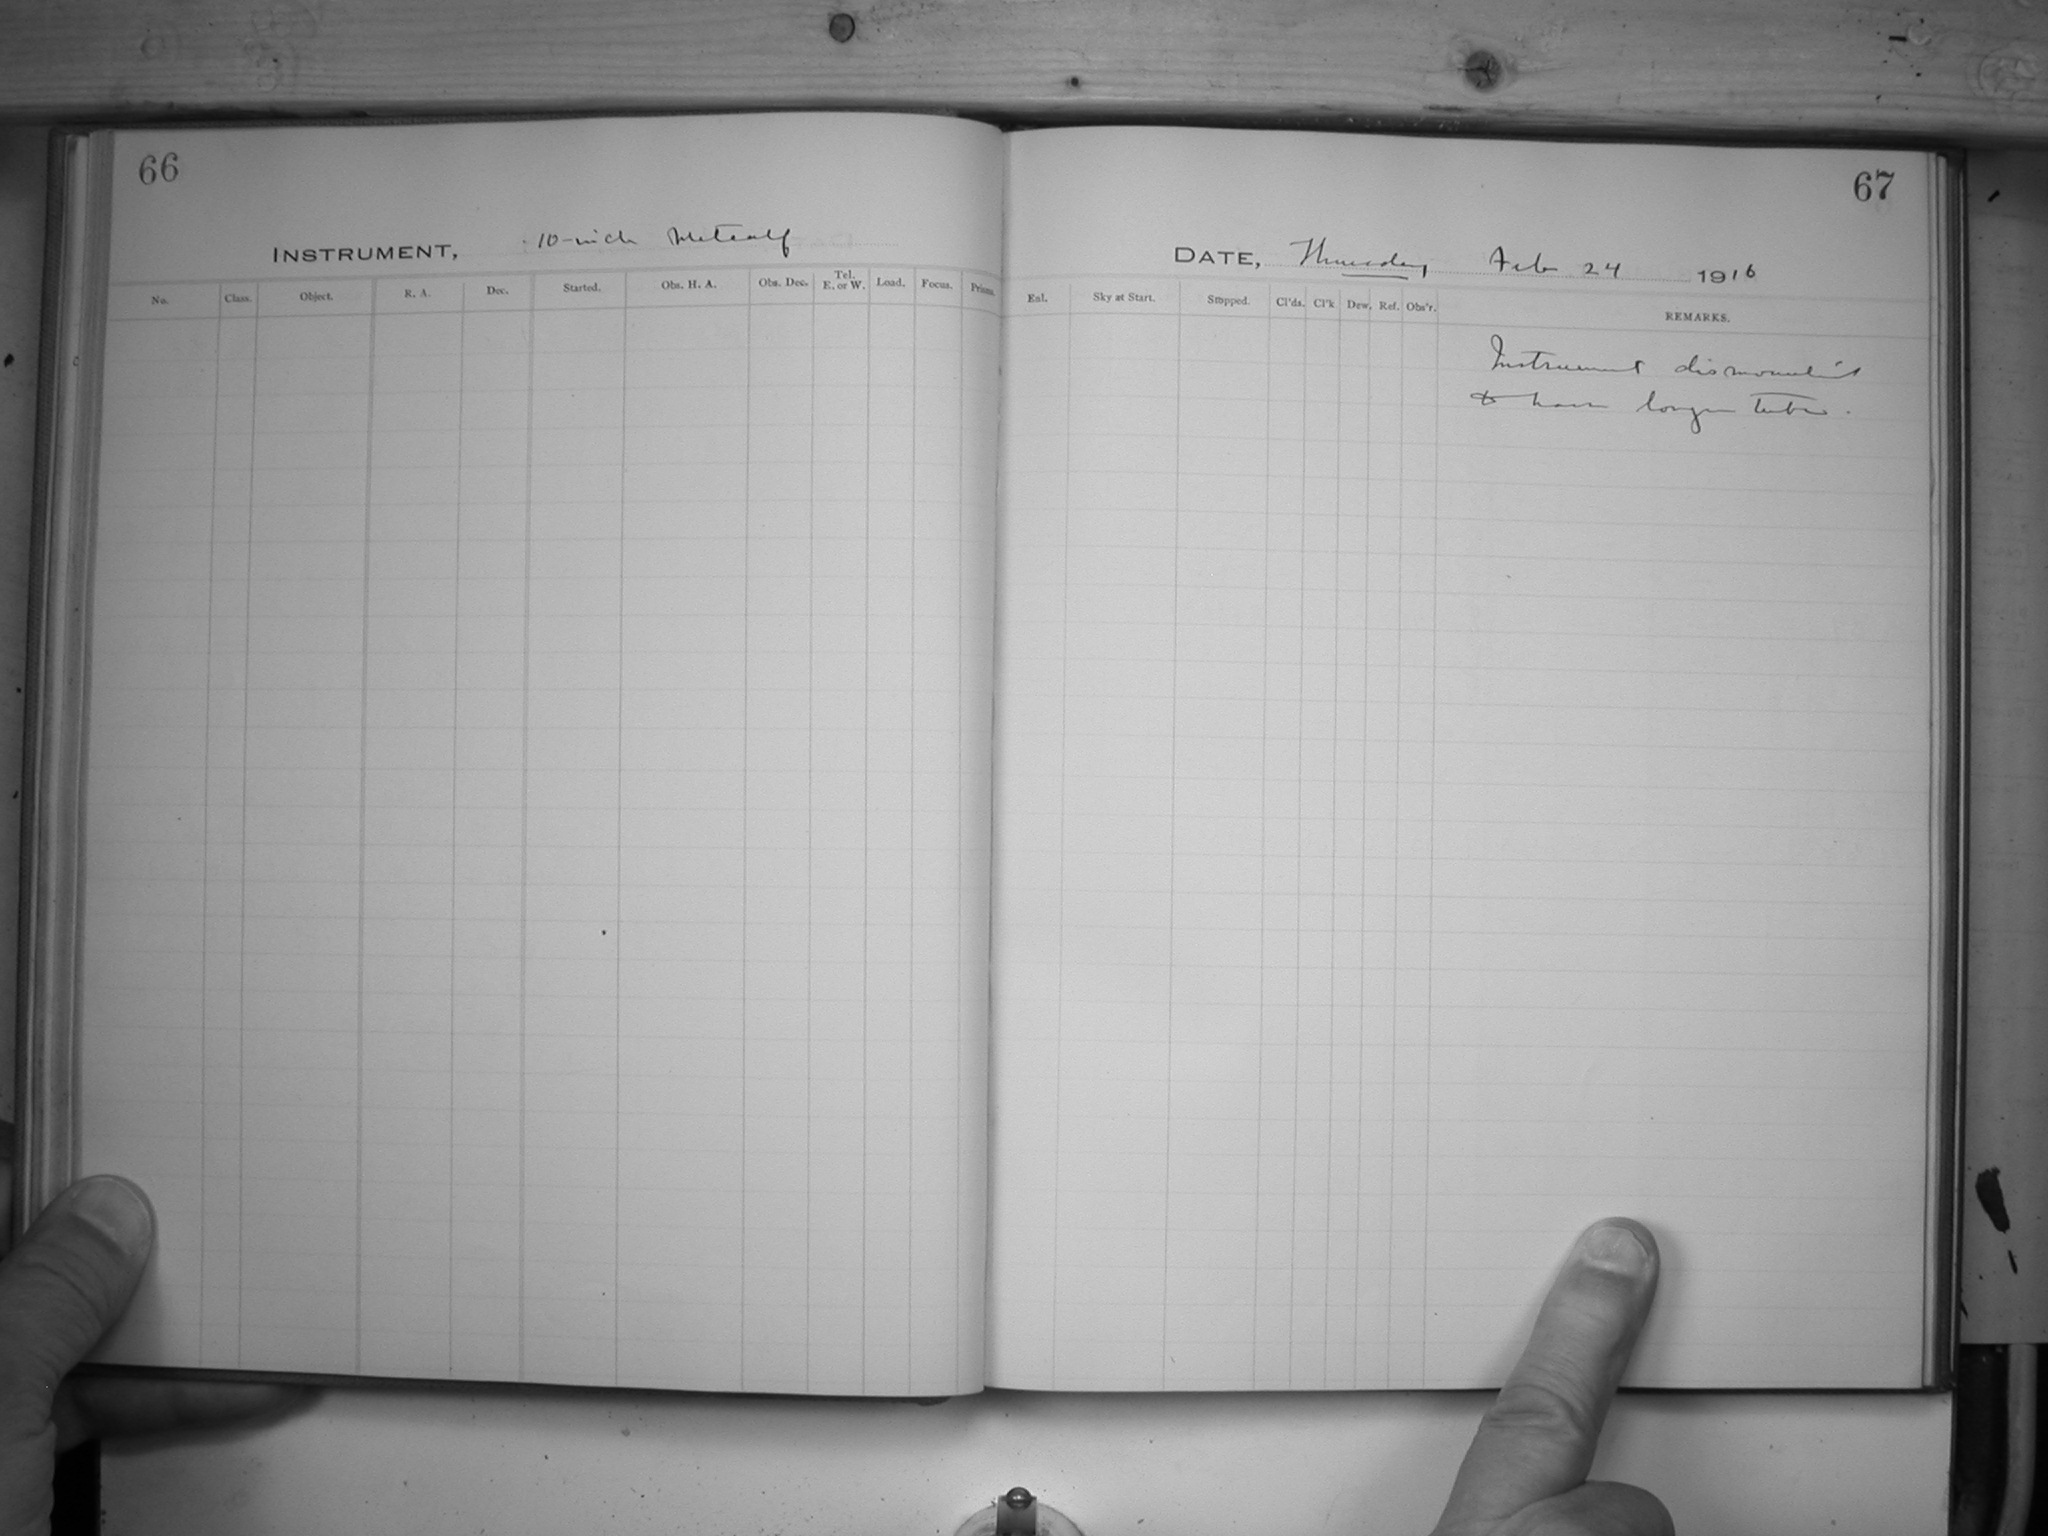 66
INSTRUMENT, 10-inch Metcalf
No. Class. Object. R. A. Dec. Started. Obs. H. A. Obs. Dec. Tel. E. or W. Load. Focus. Prisms.
67
DATE, Thursday Feb 24 1916
Enl. Sky at Start. Stopped. Cl'ds. Cl'k Dew. Ref. Obs'r. REMARKS.
Instrument dismounted
to have longer tube.